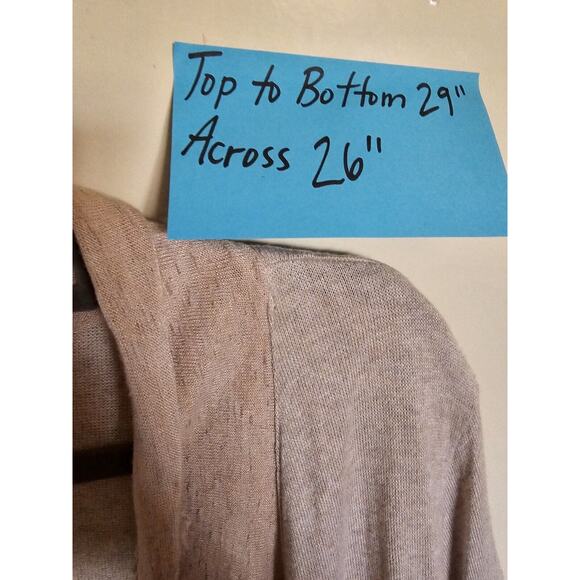 Top to Bottom 29"
Across 26"